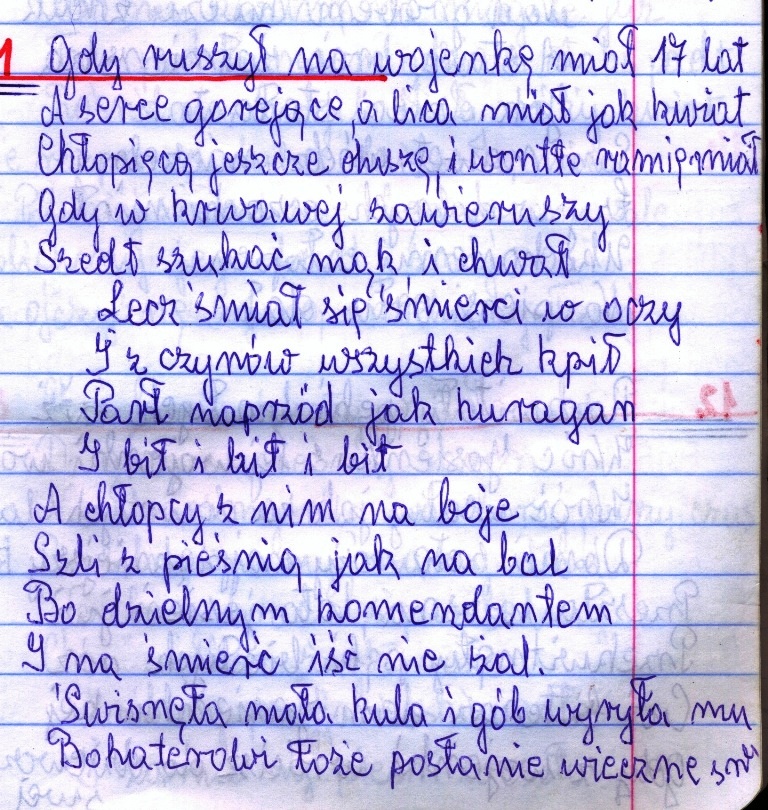 1 Gdy ruszył na wojenkę miał 17 lat
A serce gorejące, a lica miał jak kwiat
Chłopięcą jeszcze duszę, i wontłe ramię miał
Gdy w krwawej zawieruszy
Szedł szukać mąk i chwał
Lecz śmiał się śmierci w oczy
I z czynów wszystkich kpił
Parł naprzód jak huragan
I bił i bił i bił
A chłopcy z nim na boje
Szli z pieśnią jak na bal
Bo dzielnym komendantem
I na śmierć iść nie żal.
Świsnęła mała kula i gób wyryła mu
Bohaterowi łoże posłanie wieczne snu
12